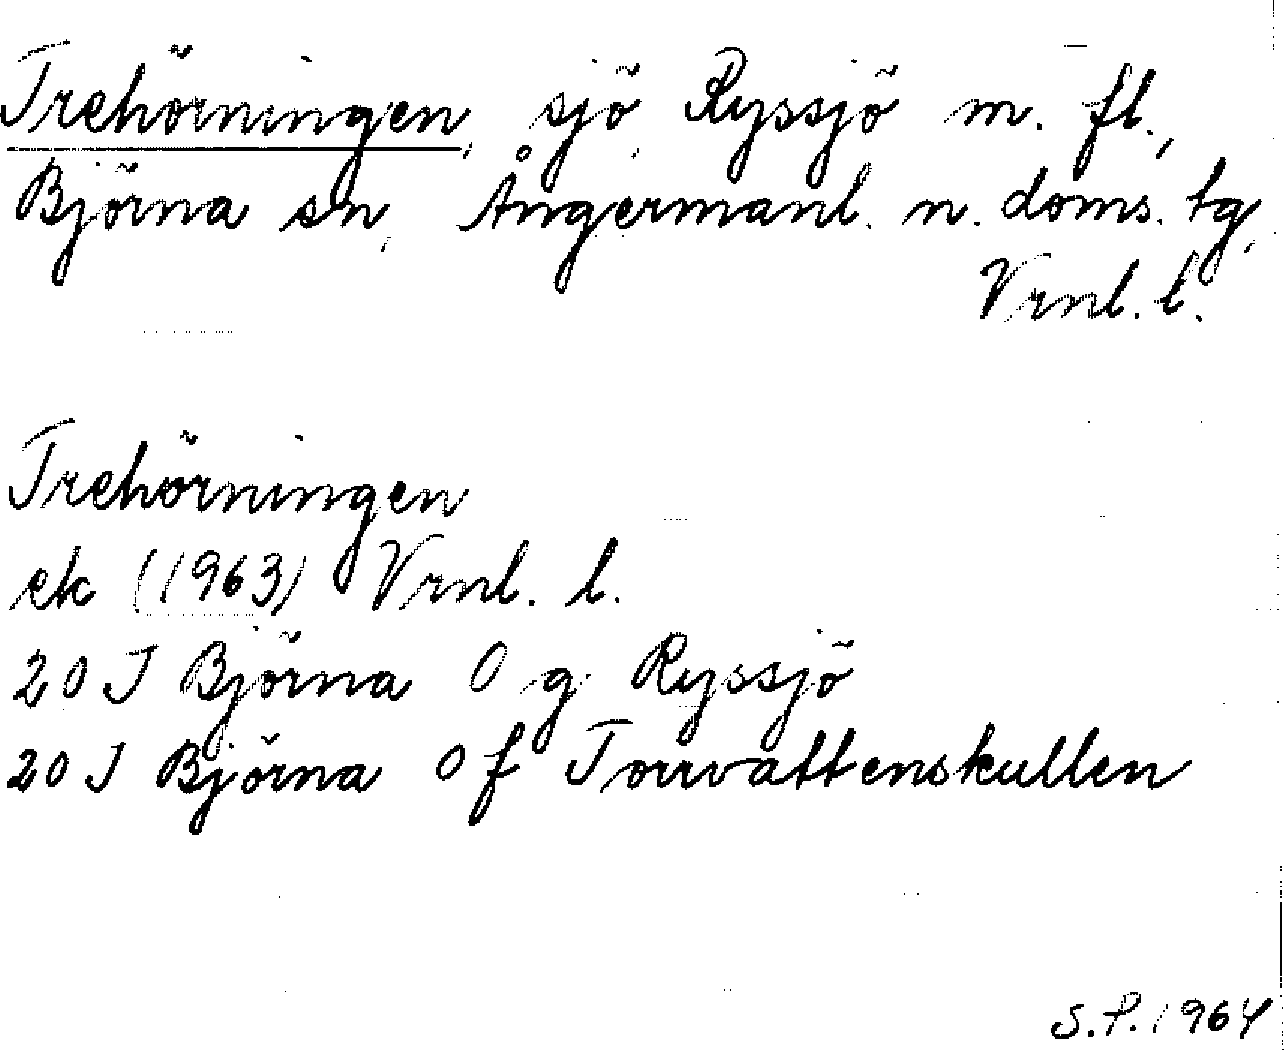 Trehörningen, sjö, Ryssjö m. fl.,
Björna sn, Ångermanl. n. doms. tg,
Vrnl. l.
Trehörningen
ek (1963) Vrnl. l.
20 J Björna 0 g Ryssjö
20 J Björna 0 f Torrvattenskullen
S.P. 1964